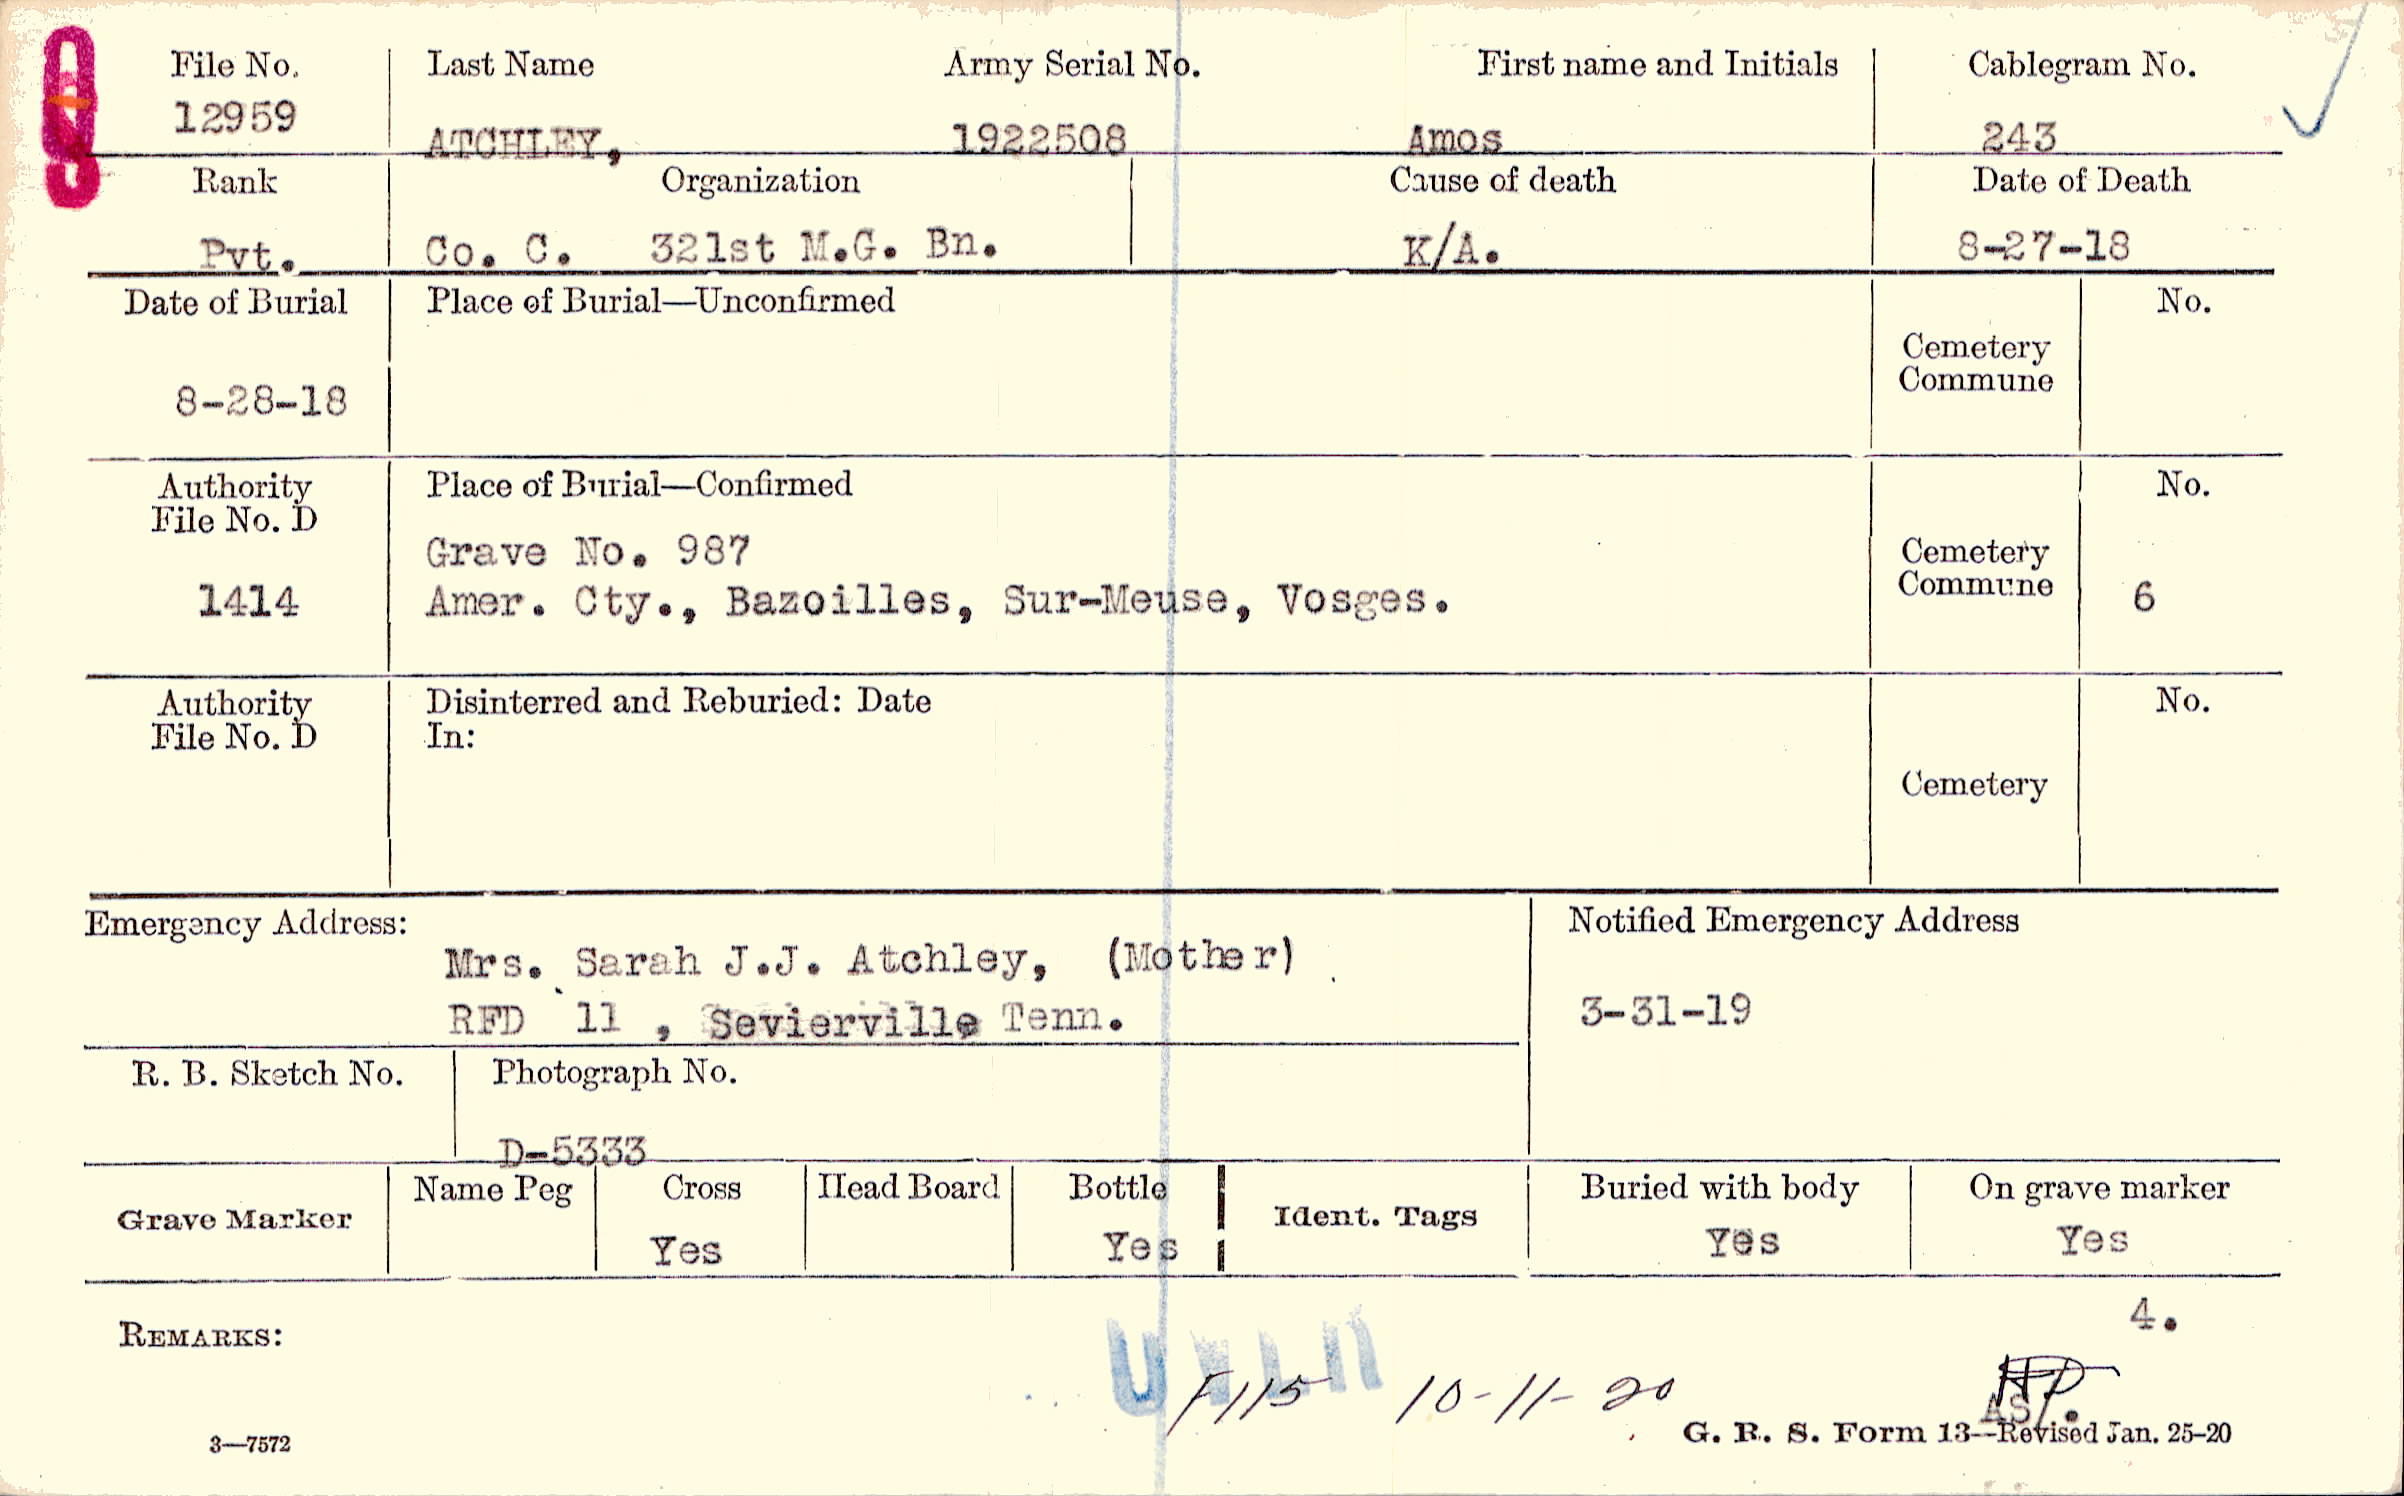 File No. Last Name Army Serial No. First name and Initials Cablegram No.
12959 ATCHLEY, 1922508 Amos 243
Rank Organization Cause of death Date of Death
Pvt. Co. C. 321st M.G. Bn. K/A. 8-27-18
Date of Burial Place of Burial—Unconfirmed No.
Cemetery
Commune
8-28-18
Authority Place of Burial—Confirmed No.
File No. D
Grave No. 987 Cemetery
1414 Amer. Cty., Bazoilles, Sur-Meuse, Vosges. Commune 6
Authority Disinterred and Reburied: Date No.
File No. D In:
Cemetery
Emergency Address: Notified Emergency Address
Mrs. Sarah J.J. Atchley, (Mother)
RFD 11 , Sevierville Tenn. 3-31-19
R. B. Sketch No. Photograph No.
D-5333
Grave Marker Name Peg Cross Head Board Bottle Ident. Tags Buried with body On grave marker
Yes Yes Yes Yes
4.
REMARKS:
F115 10-11-20
3—7572 G. R. S. Form 13—Revised Jan. 25-20